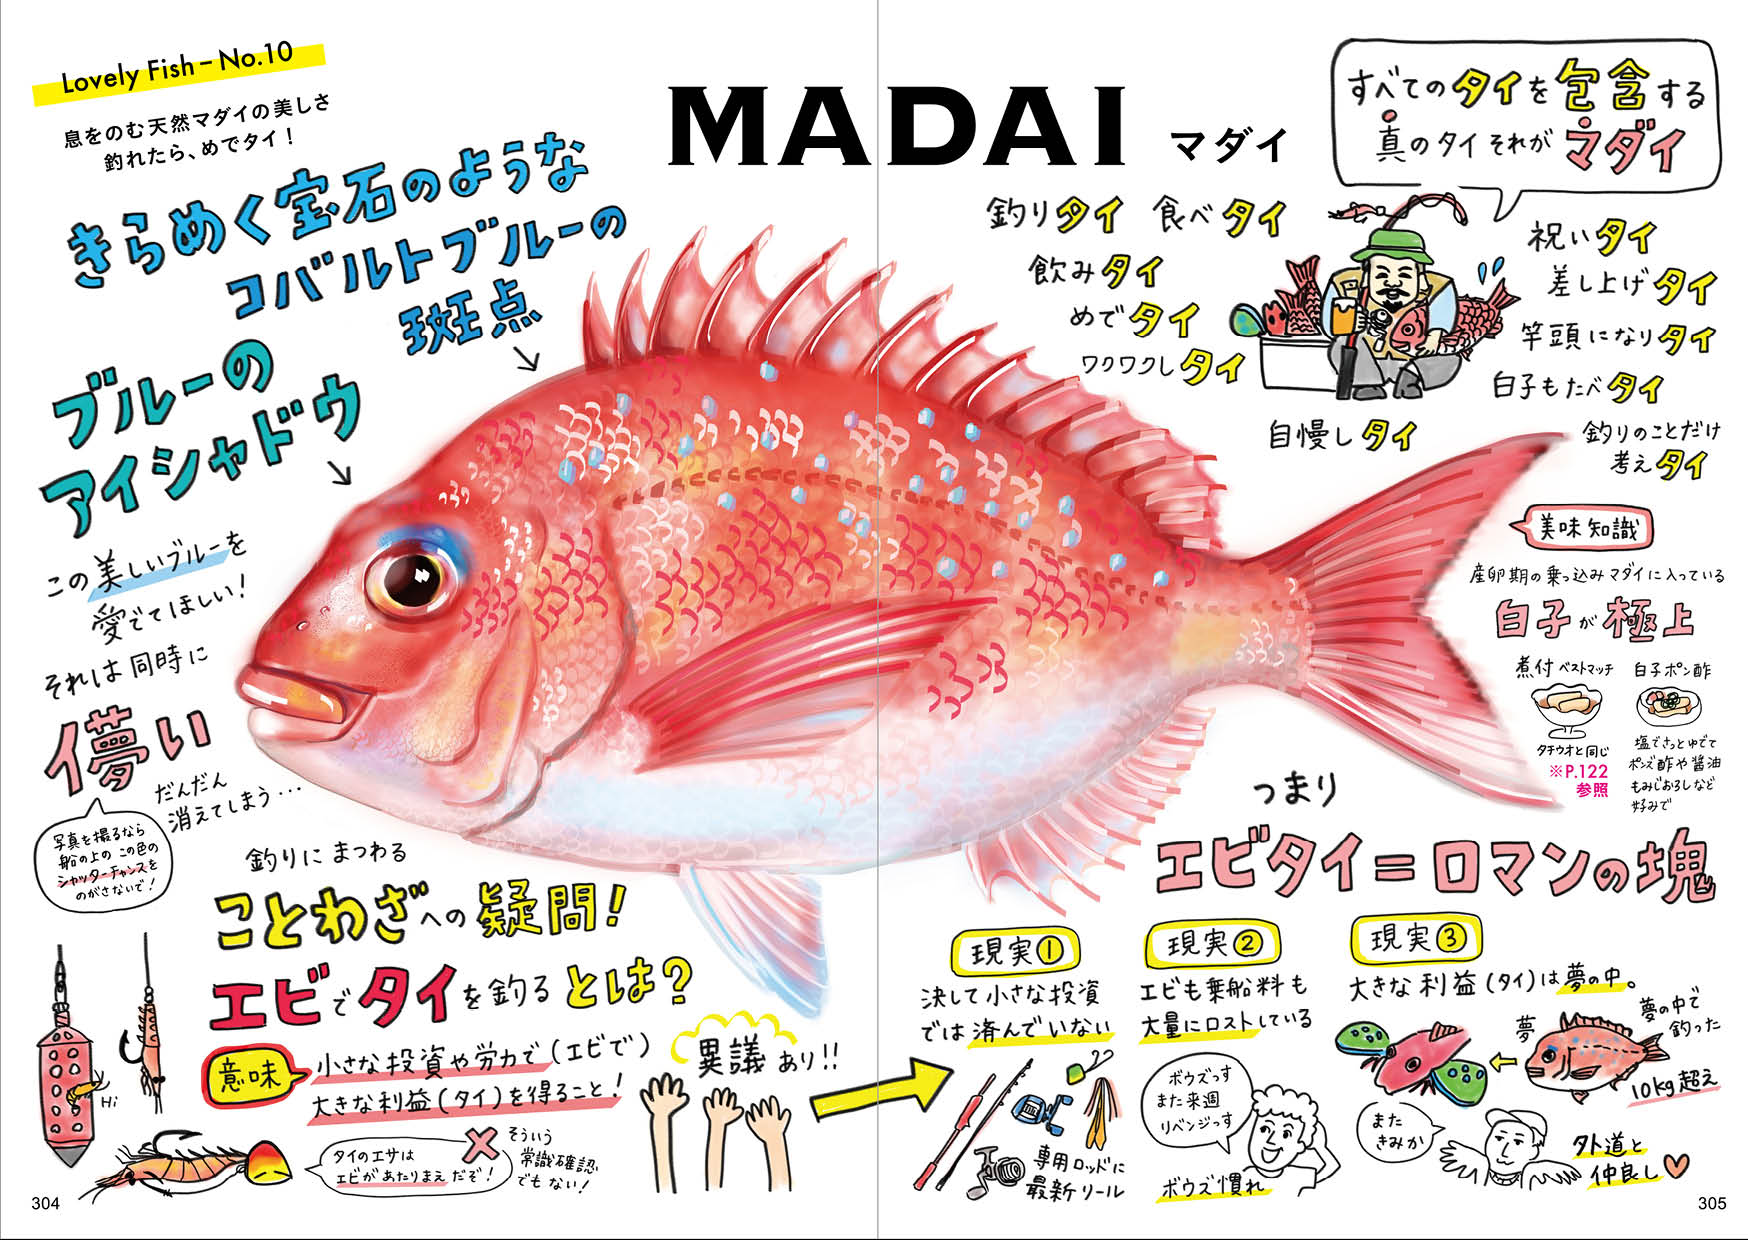 Lovely Fish – No.10
息をのむ天然マダイの美しさ
釣れたら、めでタイ！
MADAI マダイ
きらめく宝石のような
コバルトブルーの
斑点
ブルーの
アイシャドウ
この美しいブルーを
愛でてほしい！
それは同時に
儚い
だんだん
消えてしまう…
写真を撮るなら
船の上の この色の
シャッターチャンスを
のがさないで！
すべてのタイを包含する
真のタイそれがマダイ
釣りタイ 食べタイ
飲みタイ
めでタイ
ワクワクしタイ
自慢しタイ
祝いタイ
差し上げタイ
竿頭になりタイ
白子もたべタイ
釣りのことだけ
考えタイ
美味知識
産卵期の乗っ込みマダイに入っている
白子が極上
煮付 ベストマッチ
タチウオと同じ
※P.122
参照
白子ポン酢
塩でさっとゆでて
ポン酢や醤油
もみじおろしなど
好みで
釣りにまつわる
ことわざへの疑問！
エビでタイを釣るとは？
意味
小さな投資や労力で(エビで)
大きな利益(タイ)を得ること！
Hi
タイのエサは
エビがあたりまえだぞ！
そういう
常識確認
でもない！
異議あり!!
つまり
エビタイ＝ロマンの塊
現実①
決して小さな投資
では済んでいない
専用ロッドに
最新リール
現実②
エビも乗船料も
大量にロストしている
ボウズっす
また来週
リベンジっす
ボウズ慣れ
現実③
大きな利益(タイ)は夢の中。
夢
夢の中で
釣った
10kg超え
また
きみか
外道と
仲良し
304
305